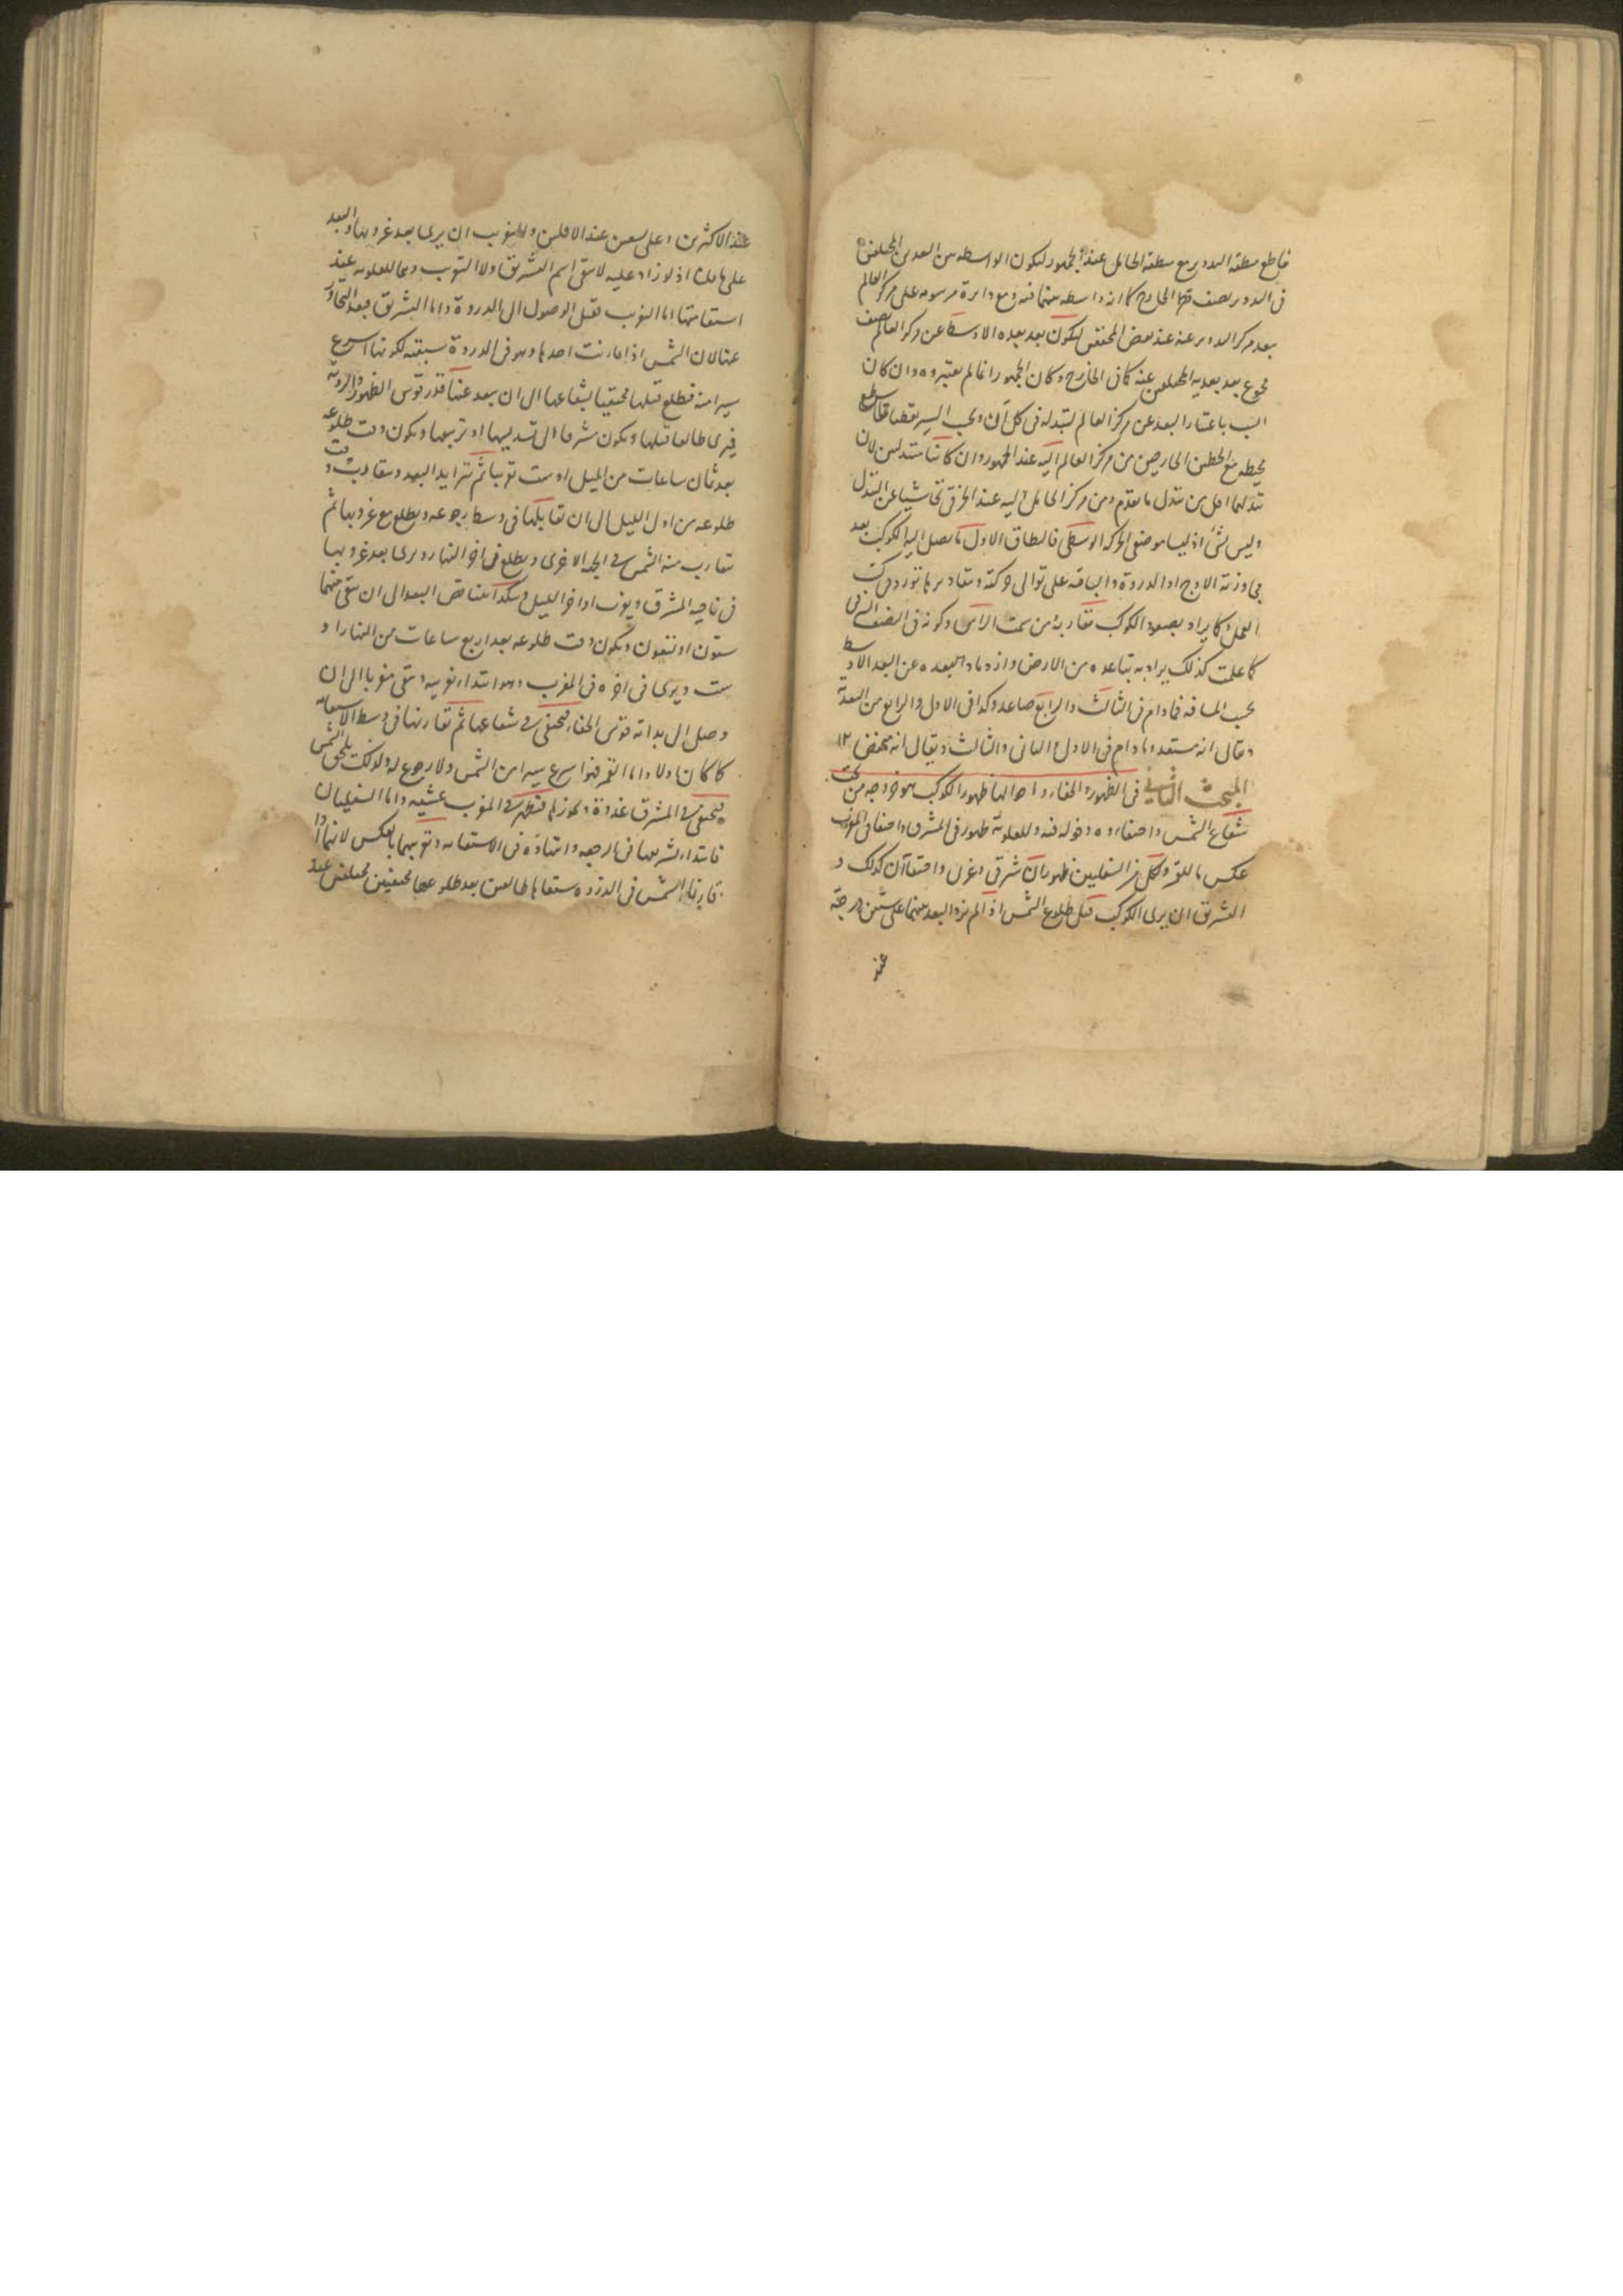 قاطع منطقه التدوير مع منطقه الحامل عند الجمهور ليكون الواسطه بين البعدين المختلفين
فى التدوير نصف قطر الخارج كما انه واسطه بينهما فيه ومع دايرة مرسومه على مركز العالم
ببعد مركز التدوير عنه عند بعض المحققين ليكون بعد بعده الاوسط عن مركز العالم نصف
مجموع بعد بعديه المختلفين عنه كما فى الخارج وكان الجمهور انما لم يعتبروه وان كان
انسب باعتبار البعد عن مركز العالم لتبدله فى كل آن وبحسب السير نقطتا تقاطع
محيطه مع الخطين الخارجين من مركز العالم اليه عند الجمهور وان كانتا متبدلتين لان
تبدلهما اقل من تبدل ما تقدم ومن مركز الحامل اليه عند الخرقى تحاشيا عن التبدل
وليس بشئ اذ ليسا موضعى الحركه الوسطى فالنطاق الاول ما يصل اليه الكوكب بعد
مجاوزته الاوج او الذروة والباقيه على توالى حركته ومقاديرها تورد فى كتب
العمل وكما يراد بصعود الكوكب تقاربه من سمت الراس وكونه فى النصف الشرقى
كما علمت كذلك يراد به تباعده من الارض وازدياد بعده عن البعد الاوسط
بحسب المسافه فما دام فى الثالث والرابع صاعد وكذا فى الاول والرابع من البعدية
ويقال انه مستعل وما دام فى الاول والثانى والثالث ويقال انه منخفض ١٢
المبحث الثانى فى الظهور والخفاء واحوالها ظهور الكوكب هو خروجه من تحت
شعاع الشمس واختفاءه دخوله فيه وللعلويه ظهور فى المشرق واختفا فى المغرب
عكس ما للقمر ولكل من السفليين ظهوران شرقى وغربى واختفاآن كذلك و
التشريق ان يرى الكوكب قبل طلوع الشمس اذا لم يزد البعد بينهما على ستين درجة
عند
عند الاكثرين وعلى تسعين عند الاقلين والتغريب ان يرى بعد غروبها والبعد
على ما قلنا اذ لو زاد عليه لا يبقى اسم التشريق ولا التغريب وهما للعلويه عند
استقامتها اما التغريب فقبل الوصول الى الذروة واما التشريق فبعد التجاوز
عنها لان الشمس اذا قارنت احدها وهو فى الذروة سبقته لكونها اسرع
سيرا منه فتطلع قبلها مختفيا بشعاعها الى ان يبعد عنها قدر قوس الظهور والرؤيه
فيرى طالعا قبلها ويكون مشرقا الى تسديسها او تربيعها ويكون وقت طلوعه
بعد ثمان ساعات من الليل او ست تقريبا ثم تتزايد البعد ويتقارب وقت
طلوعه من اول الليل الى ان تقابلها فى وسط رجوعه ويطلع مع غروبها ثم
تتقارب منه الشمس فى الجهه الاخرى ويطلع فى اخر النهار ويرى بعد غروبها
فى ناحيه المشرق ويغرب اواخر الليل وهكذا يتناقص البعد الى ان يبقى بينهما
ستون او تسعون ويكون وقت طلوعه بعد اربع ساعات من النهار او
ست ويرى فى اخره فى المغرب وهو ابتداء تغريبه ويبقى مغربا الى ان
وصل الى بداية قوس الخفاء فيختفى فى شعاعها ثم تقارنها فى وسط الاستقامه
كما كان اولا واما القمر فهو اسرع سيرا من الشمس ولا رجوع له ولذلك يلحق الشمس
فيختفى فى المشرق غدوة ويجوزها فيظهر فى المغرب عشيه واما السفليان
فابتداء تشريقهما فى الرجعه وانتهاؤه فى الاستقامه وتغريبهما بالعكس لانهما اذا
قارنتا الشمس فى الذروه سبقاها طالعين بعد طلوعها مختفيين مختلفين عند